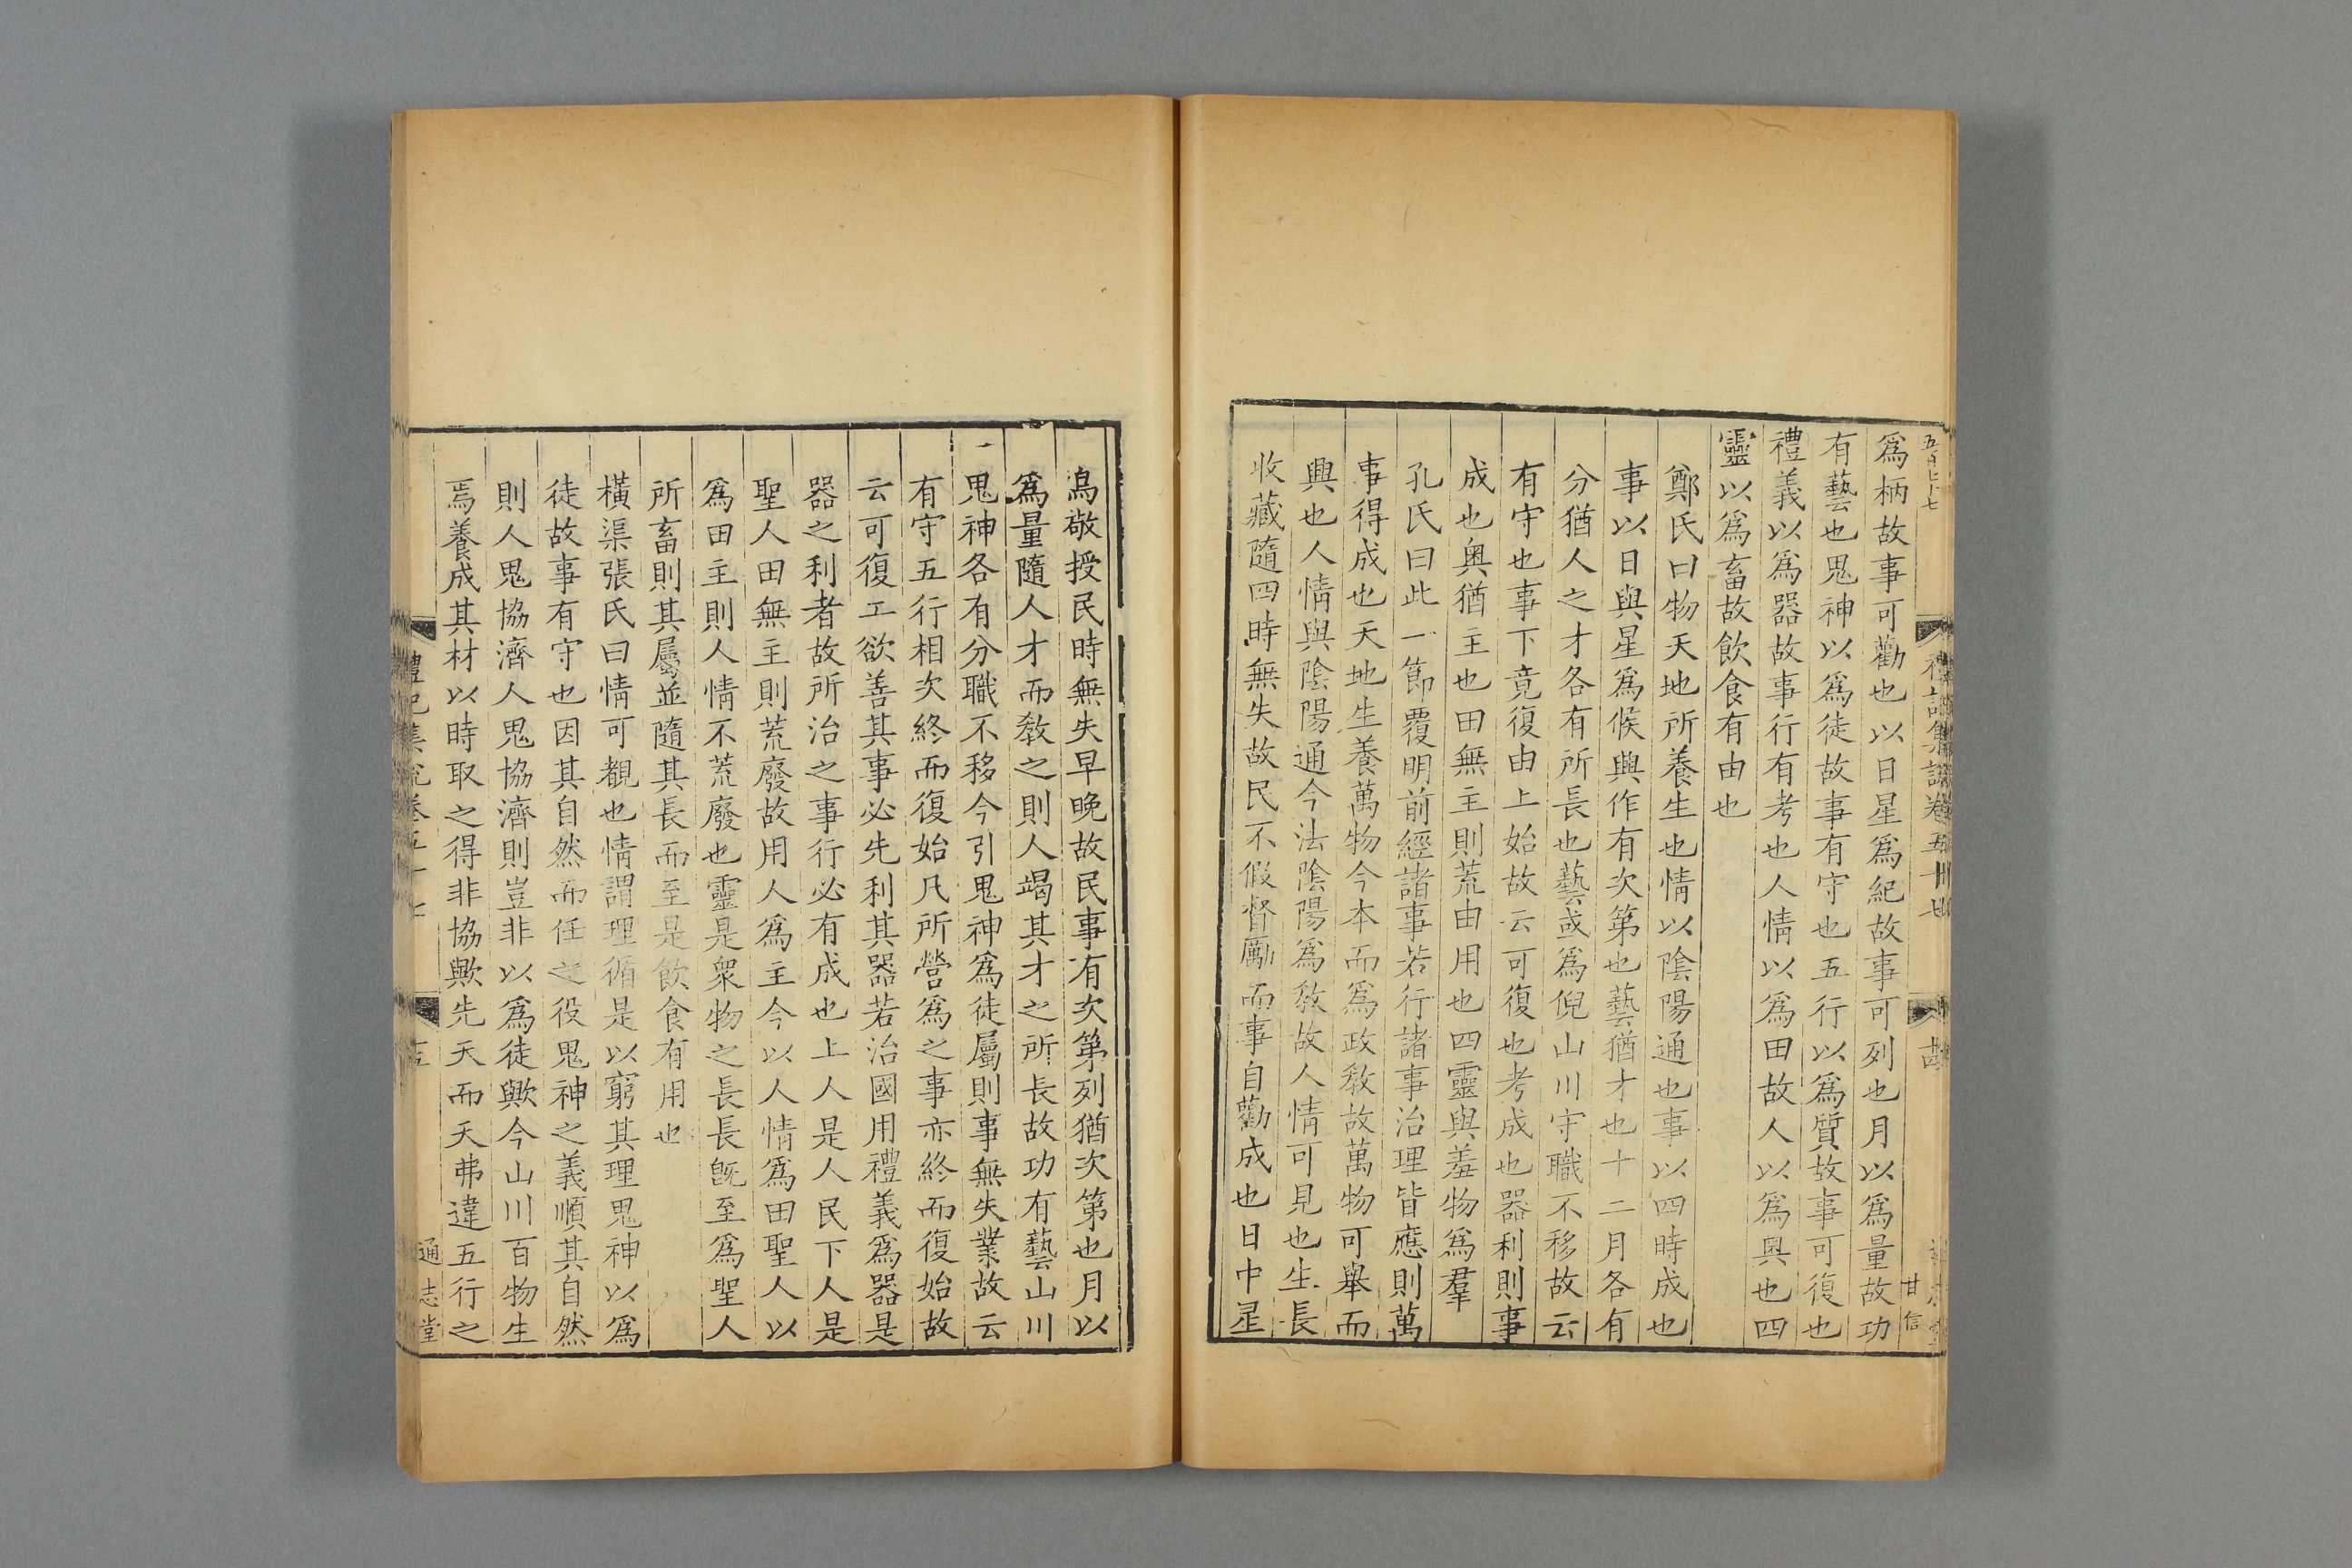 五百七十七
禮記集說卷五十七
甘信
爲柄故事可勸也以日星爲紀故事可列也月以爲量故功
有藝也鬼神以爲徒故事有守也五行以爲質故事可復也
禮義以爲器故事行有考也人情以爲田故人以爲奧也四
靈以爲畜故飲食有由也
鄭氏曰物天地所養生也情以陰陽通也事以四時成也
事以日與星爲候興作有次第也藝猶才也十二月各有
分猶人之才各有所長也藝或爲倪山川守職不移故云
有守也事下竟復由上始故云可復也考成也器利則事
成也奧猶主也田無主則荒由用也四靈與羞物爲羣
孔氏曰此一節覆明前經諸事若行諸事治理皆應則萬
事得成也天地生養萬物今本而爲政敎故萬物可舉而
興也人情與陰陽通今法陰陽爲敎故人情可見也生長
收藏隨四時無失故民不假督厲而事自勸成也日中星
鳥敬授民時無失早晚故民事有次第列猶次第也月以
爲量隨人才而敎之則人竭其才之所長故功有藝山川
鬼神各有分職不移今引鬼神爲徒屬則事無失業故云
有守五行相次終而復始凡所營爲之事亦終而復始故
云可復工欲善其事必先利其器若治國用禮義爲器是
器之利者故所治之事行必有成也上人是人民下人是
聖人田無主則荒廢故用人爲主今以人情爲田聖人以
爲田主則人情不荒廢也靈是衆物之長長旣至爲聖人
所畜則其屬並隨其長而至是飲食有用也
橫渠張氏曰情可覩也情謂理循是以窮其理鬼神以爲
徒故事有守也因其自然而任之役鬼神之義順其自然
則人鬼協濟人鬼協濟則豈非以爲徒歟今山川百物生
焉養成其材以時取之得非協歟先天而天弗違五行之
禮記集說卷五十七
十五
通志堂